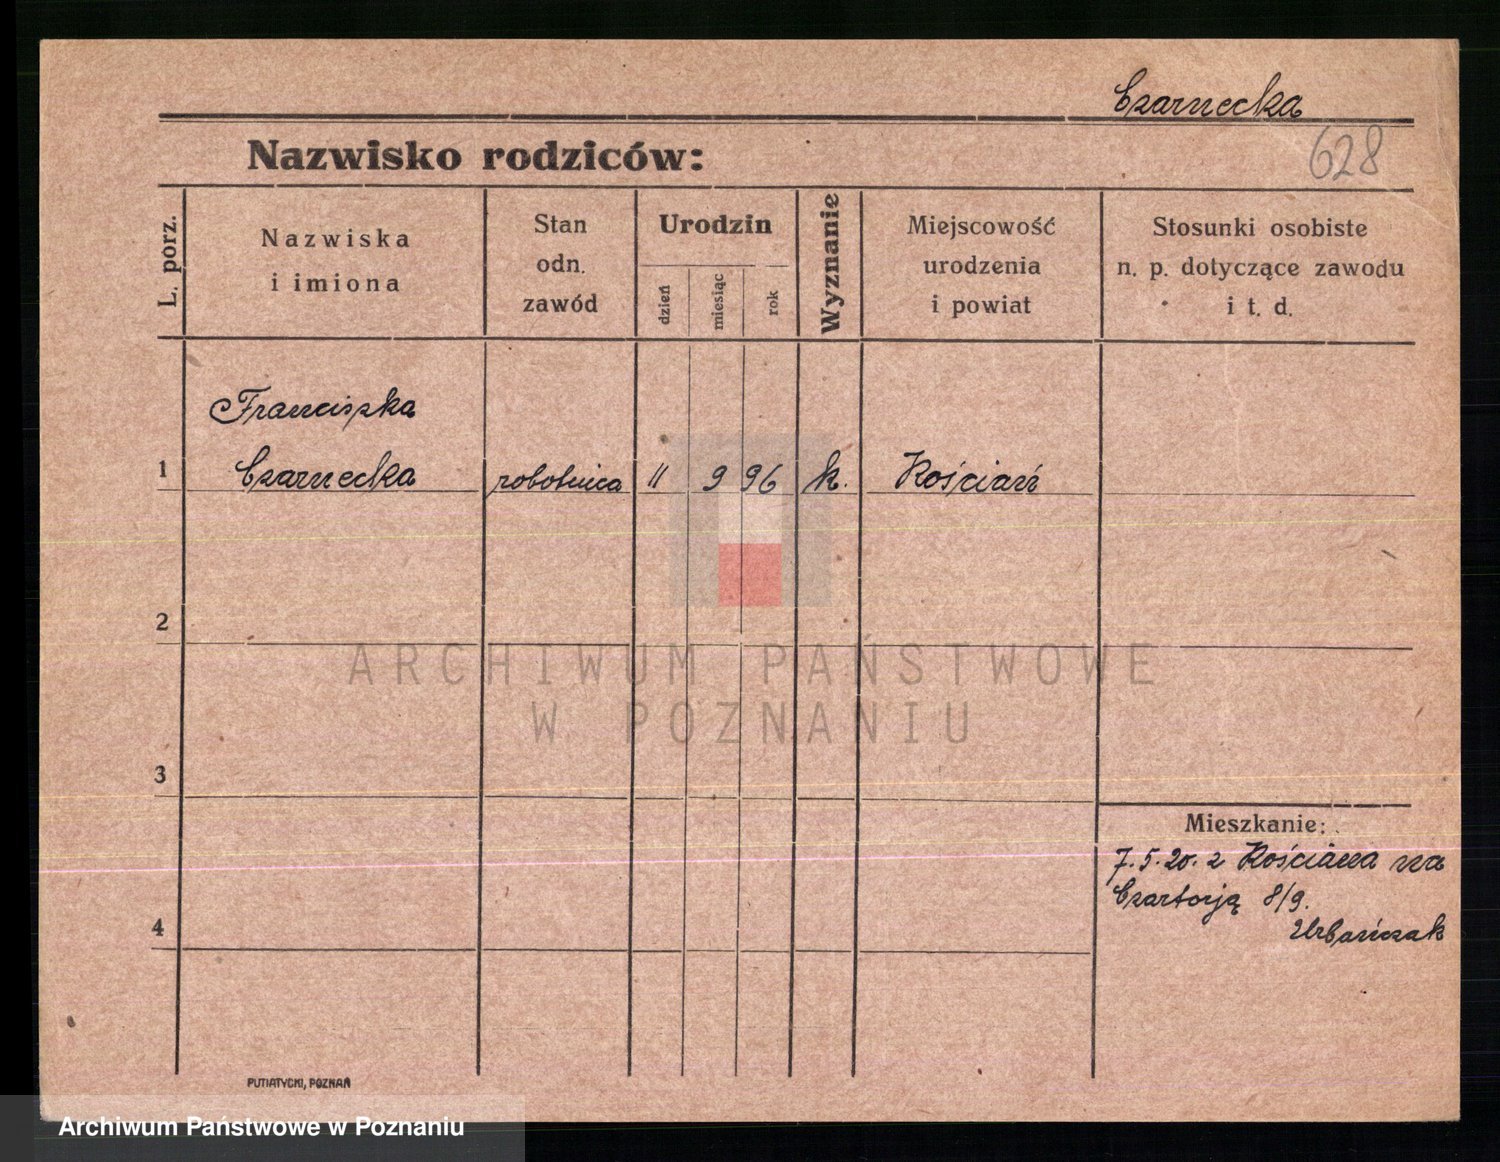 Czarnecka
628
Nazwisko rodziców:
L. porz.
Nazwiska
i imiona
Stan
odn.
zawód
Urodzin
dzień
miesiąc
rok
Wyznanie
Miejscowość
urodzenia
i powiat
Stosunki osobiste
n. p. dotyczące zawodu
i t. d.
Franciszka
1 Czarnecka robotnica 11 9 96 k. Kościań
2
3
4
Mieszkanie:
7.5.20. z Kościana na
Czartorją 8/9.
Urbańczak
ARCHIWUM PAŃSTWOWE
W POZNANIU
PUTIATYCKI, POZNAŃ
Archiwum Państwowe w Poznaniu